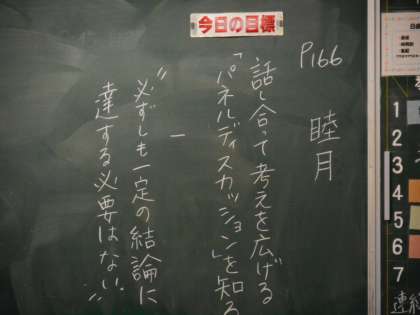 今日の目標
P166
睦月
話し合って考えを広げる
「パネルディスカッション」を知る
―
"必ずしも一定の結論に
達する必要はない"
1
2
3
4
5
6
7